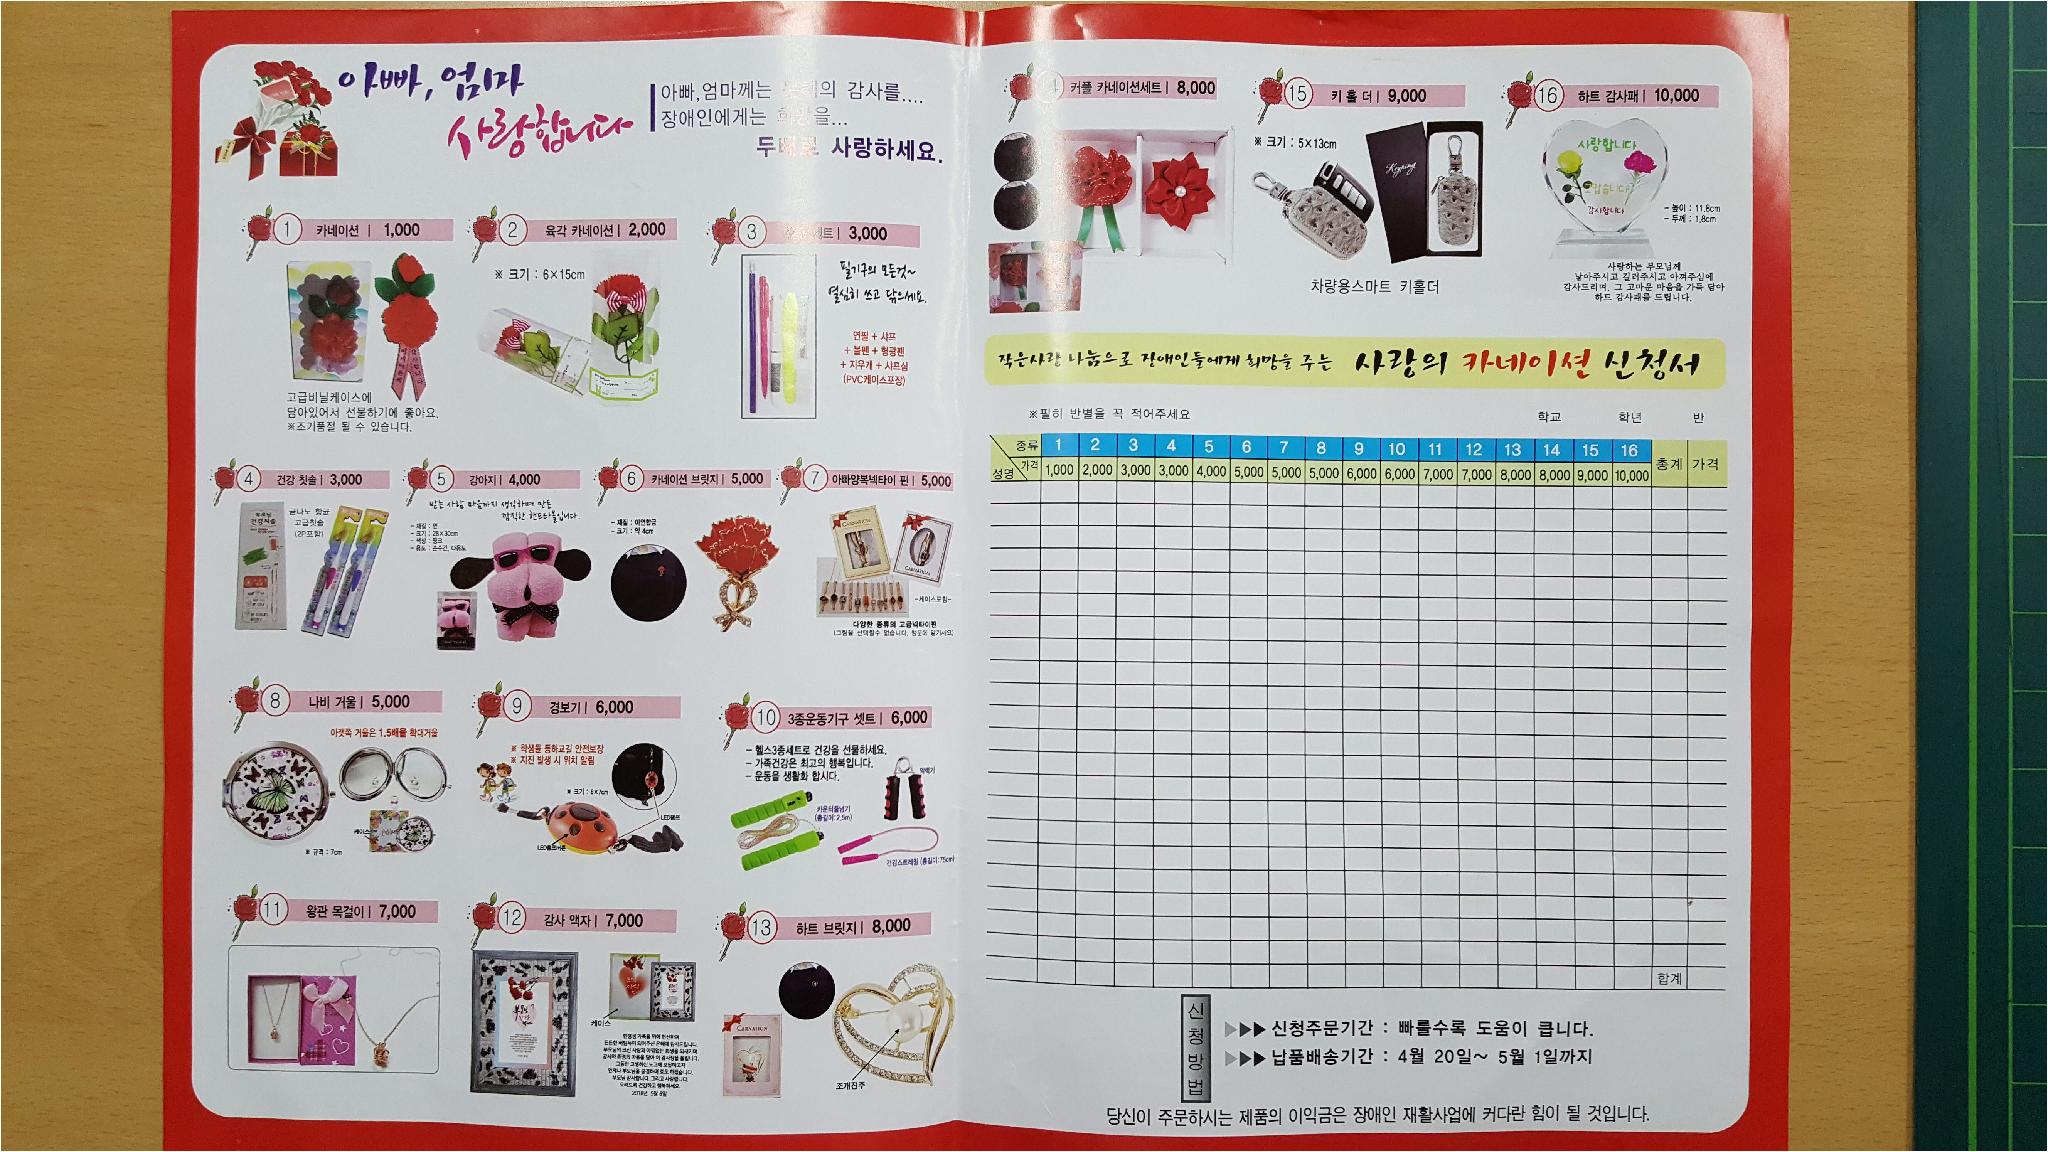 아빠, 엄마
사랑합니다
아빠,엄마께는 의 감사를....
장애인에게는 을...
두배로 사랑하세요.
1 카네이션 | 1,000
고급비닐케이스에
담아있어서 선물하기에 좋아요.
※조기품절 될 수 있습니다.
2 육각 카네이션 | 2,000
※ 크기 : 6×15cm
3 세트 | 3,000
필기구의 모든것~
열심히 쓰고 닦으세요.
연필 + 샤프
+ 볼펜 + 형광펜
+ 지우개 + 샤프심
(PVC케이스포장)
4 건강 칫솔 | 3,000
금나노 항균
고급칫솔
(2P포함)
5 강아지 | 4,000
받는 사람 마음까지 생각하며 만든
깜직한 핸드타올입니다.
- 재질 : 면
- 크기 : 28×30cm
- 색상 : 핑크
- 용도 : 손수건, 다용도
6 카네이션 브릿지 | 5,000
- 재질 : 아연합금
- 크기 : 약 4cm
7 아빠양복넥타이 핀 | 5,000
CARNATION
CARNATION
-케이스포함-
다양한 종류의 고급넥타이핀
(그림을 선택할수 없습니다.
8 나비 거울 | 5,000
아랫쪽 거울은 1.5배율 확대거울
케이스
※ 규격 : 7cm
9 경보기 | 6,000
※ 학생들 등하교길 안전보장
※ 지진 발생 시 위치 알림
※ 크기 : 6×7cm
LED램프
LED램프버튼
10 3종운동기구 셋트 | 6,000
- 헬스3종세트로 건강을 선물하세요.
- 가족건강은 최고의 행복입니다.
- 운동을 생활화 합시다.
악력기
카운터줄넘기
(총길이:2.5m)
건강스트레칭 (총길이:75cm)
11 왕관 목걸이 | 7,000
12 감사 액자 | 7,000
케이스
2018년 5월 8일
13 하트 브릿지 | 8,000
CARNATION
조개진주
커플 카네이션세트 | 8,000
15 키 홀 더 | 9,000
※ 크기 : 5×13cm
차량용스마트 키홀더
16 하트 감사패 | 10,000
사랑합니다
감사합니다
- 높이 : 11.8cm
- 두께 : 1.8cm
사랑하는 부모님께
낳아주시고 길러주시고 아껴주심에
감사드리며, 그 고마운 마음을 가득 담아
하트 감사패를 드립니다.
작은사랑 나눔으로 장애인들에게 희망을 주는 사랑의 카네이션 신청서
※필히 반별을 꼭 적어주세요 학교 학년 반
종류 1 2 3 4 5 6 7 8 9 10 11 12 13 14 15 16 총계 가격
성명 가격 1,000 2,000 3,000 3,000 4,000 5,000 5,000 5,000 6,000 6,000 7,000 7,000 8,000 8,000 9,000 10,000
합계
신청방법
신청주문기간 : 빠를수록 도움이 큽니다.
납품배송기간 : 4월 20일~ 5월 1일까지
당신이 주문하시는 제품의 이익금은 장애인 재활사업에 커다란 힘이 될 것입니다.